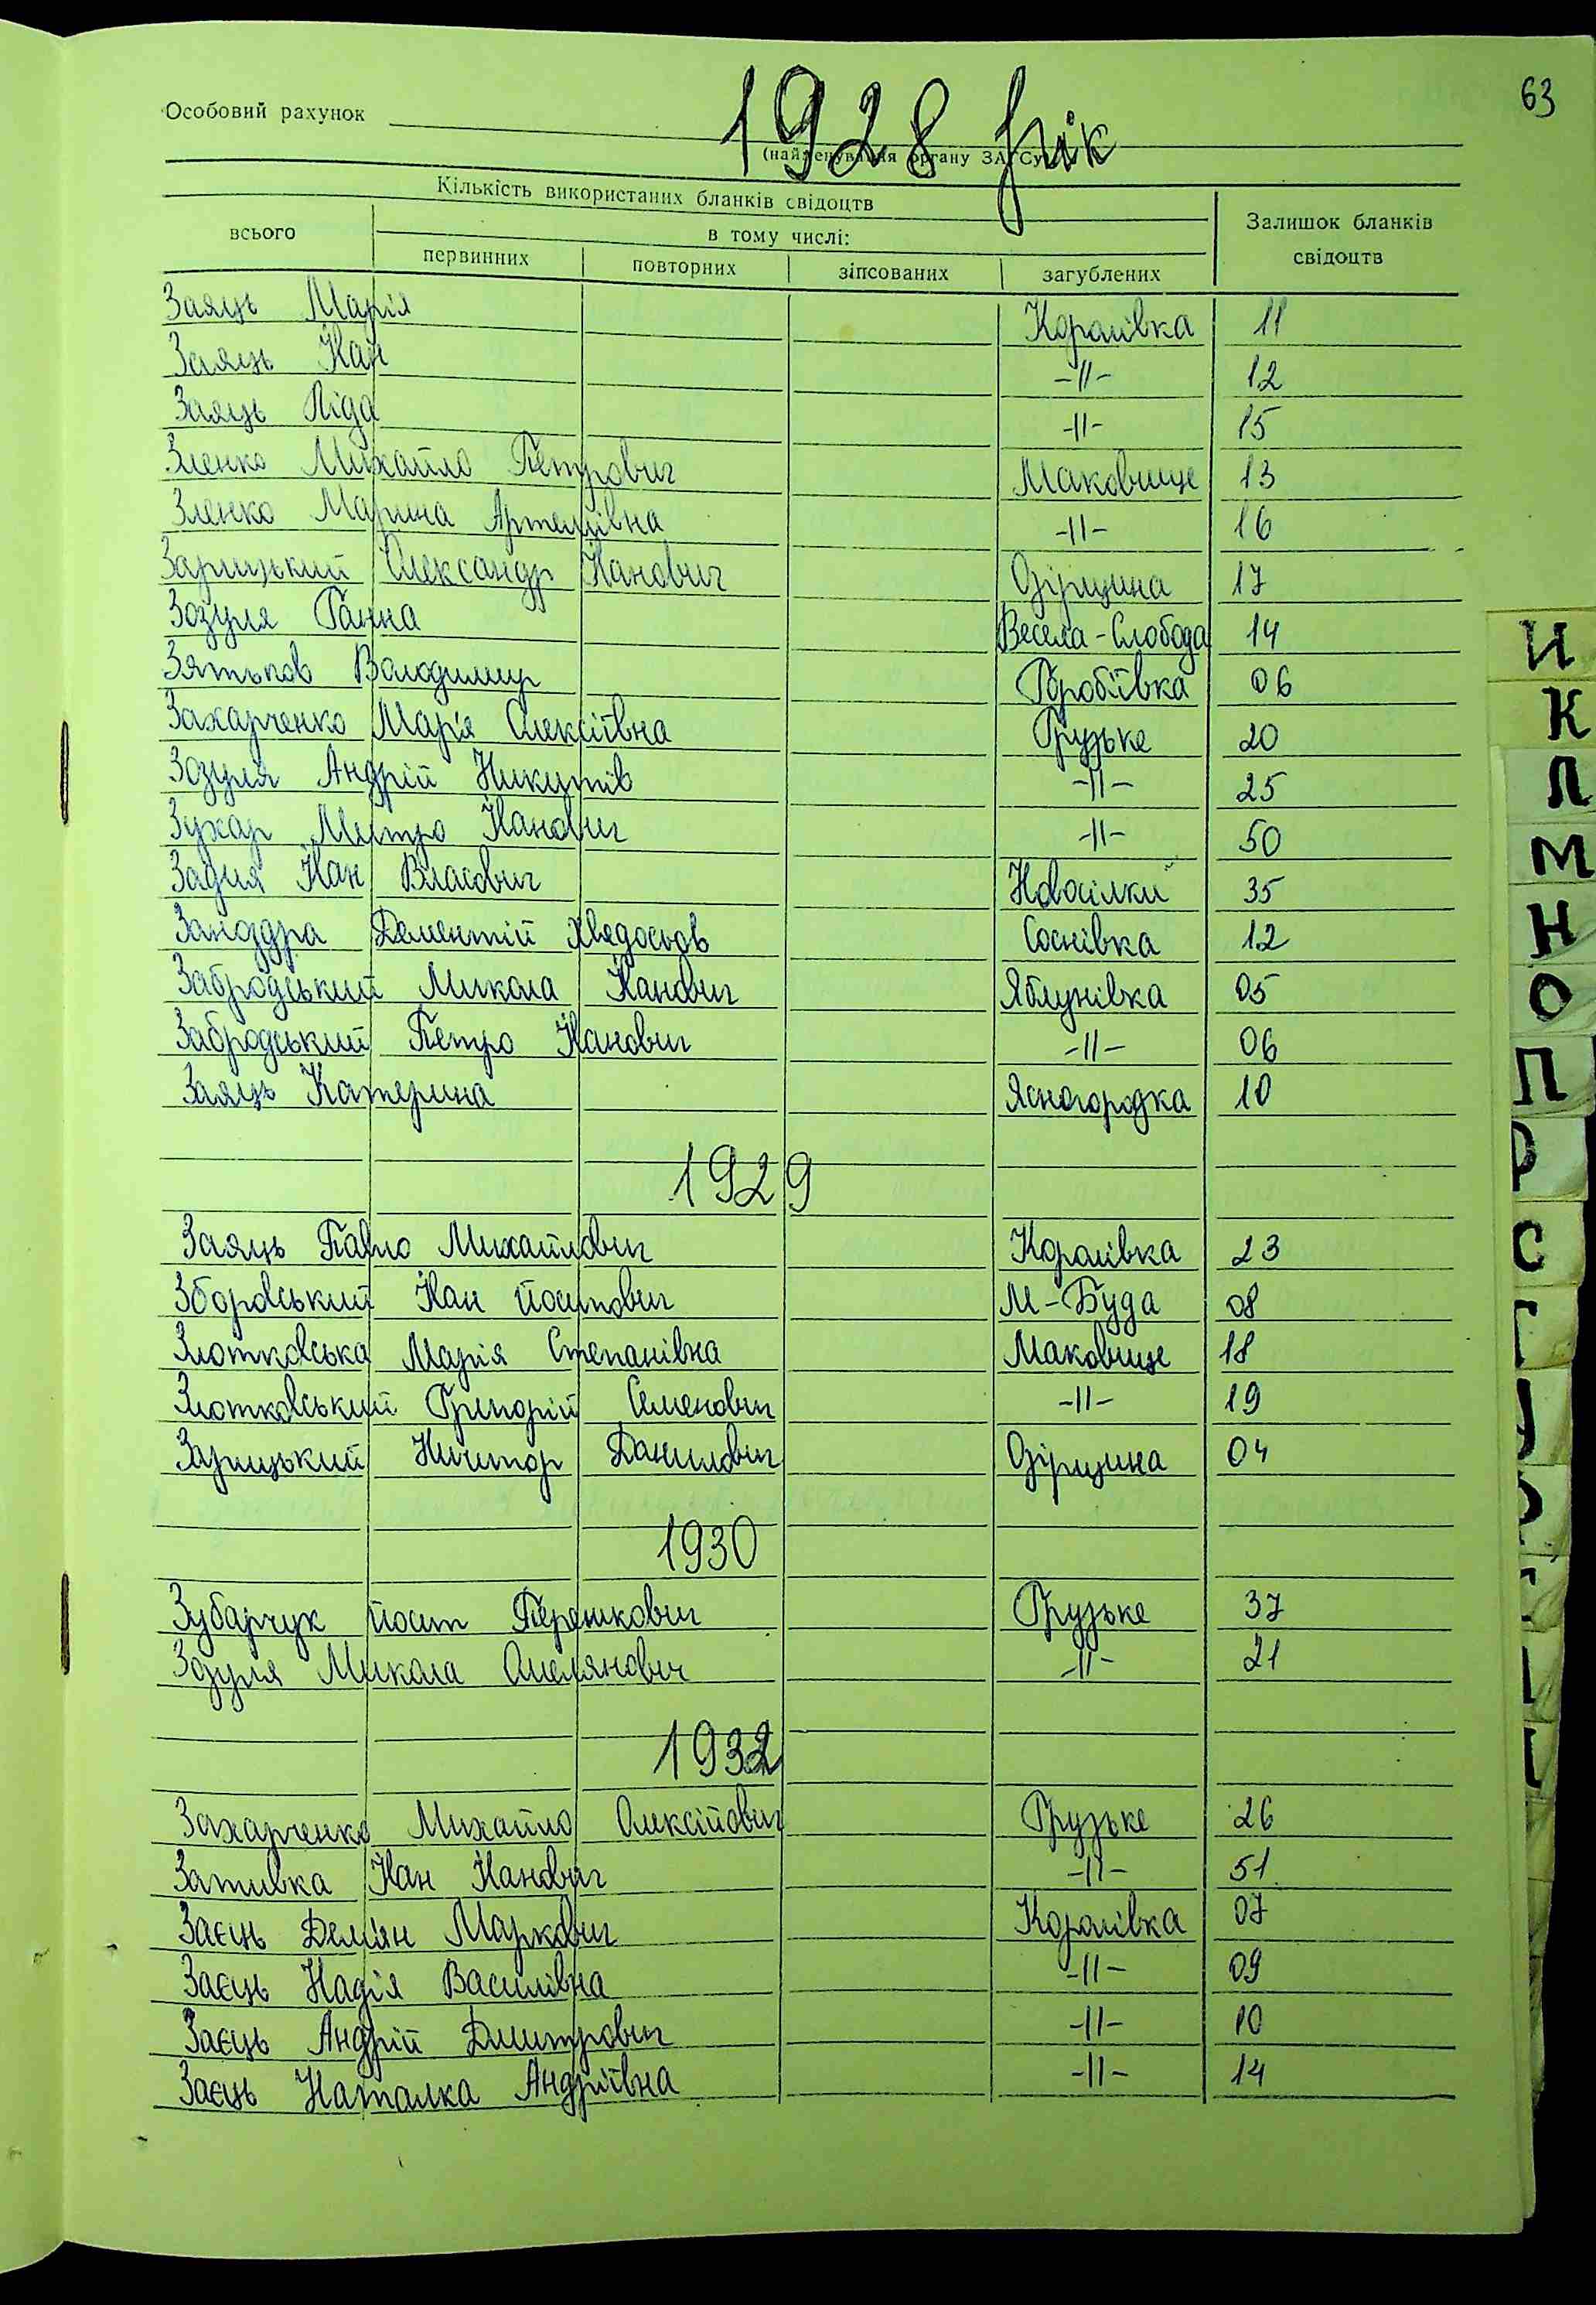 63
1928 рік
Особовий рахунок
(найменування органу ЗАГСу)
Кількість використаних бланків свідоцтв
Залишок бланків свідоцтв
всього
в тому числі:
первинних повторних зіпсованих загублених
Заяць Марія Королівка 11
Заяць Іван -//- 12
Заяць Ліда -//- 15
Зленко Михайло Петрович Маковище 13
Зленко Марина Артемівна -//- 16
Зарицький Олександр Іванович Озірщина 17
Зозуля Ганна Весела-Слобода 14
Зятьков Володимир 06
Захарченко Мар'я Олексіївна Грузьке 20
Зозуля Андрій Никитів -//- 25
Зухар Митро Іванович -//- 50
Задня Іван Власович Новосілки 35
Заноздра Дементій Хведосьов Соснівка 12
Забродський Микола Іванович Яблунівка 05
Забродський Петро Іванович -//- 06
Заяць Катерина Ясногородка 10
1929
Заяць Павло Михайлович Королівка 23
Зборовський Іван Йосипович М-Буда 08
Злотковська Марія Степанівна Маковище 18
Злотковський Григорій Семенович -//- 19
Зарицький Ничипор Данилович Озірщина 04
1930
Зубарчук Йосип Терешкович Грузьке 37
Зозуля Микола Омелянович -//- 21
1932
Захарченко Михайло Олексійович Грузьке 26
Зативка Іван Іванович -//- 51
Заєць Демян Маркович Королівка 07
Заєць Надія Василівна -//- 09
Заєць Андрій Дмитрович -//- 10
Заєць Наталка Андріївна -//- 14
И
К
Л
М
Н
О
П
Р
С